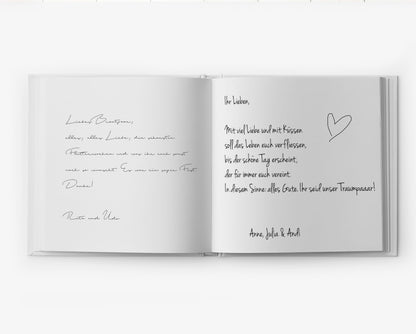 Liebes Brautpaar,
alles, alles Liebe, die schönsten
Flitterwochen und was ihr euch sonst
noch so wünscht. Es war ein super Fest.
Danke!
Rita und Udo
Ihr Lieben,
Mit viel Liebe und mit Küssen
soll das Leben euch verfliessen,
bis der schöne Tag erscheint,
der für immer euch vereint.
In diesem Sinne: alles Gute. Ihr seid unser Traumpaar!
Anne, Julia & Andi